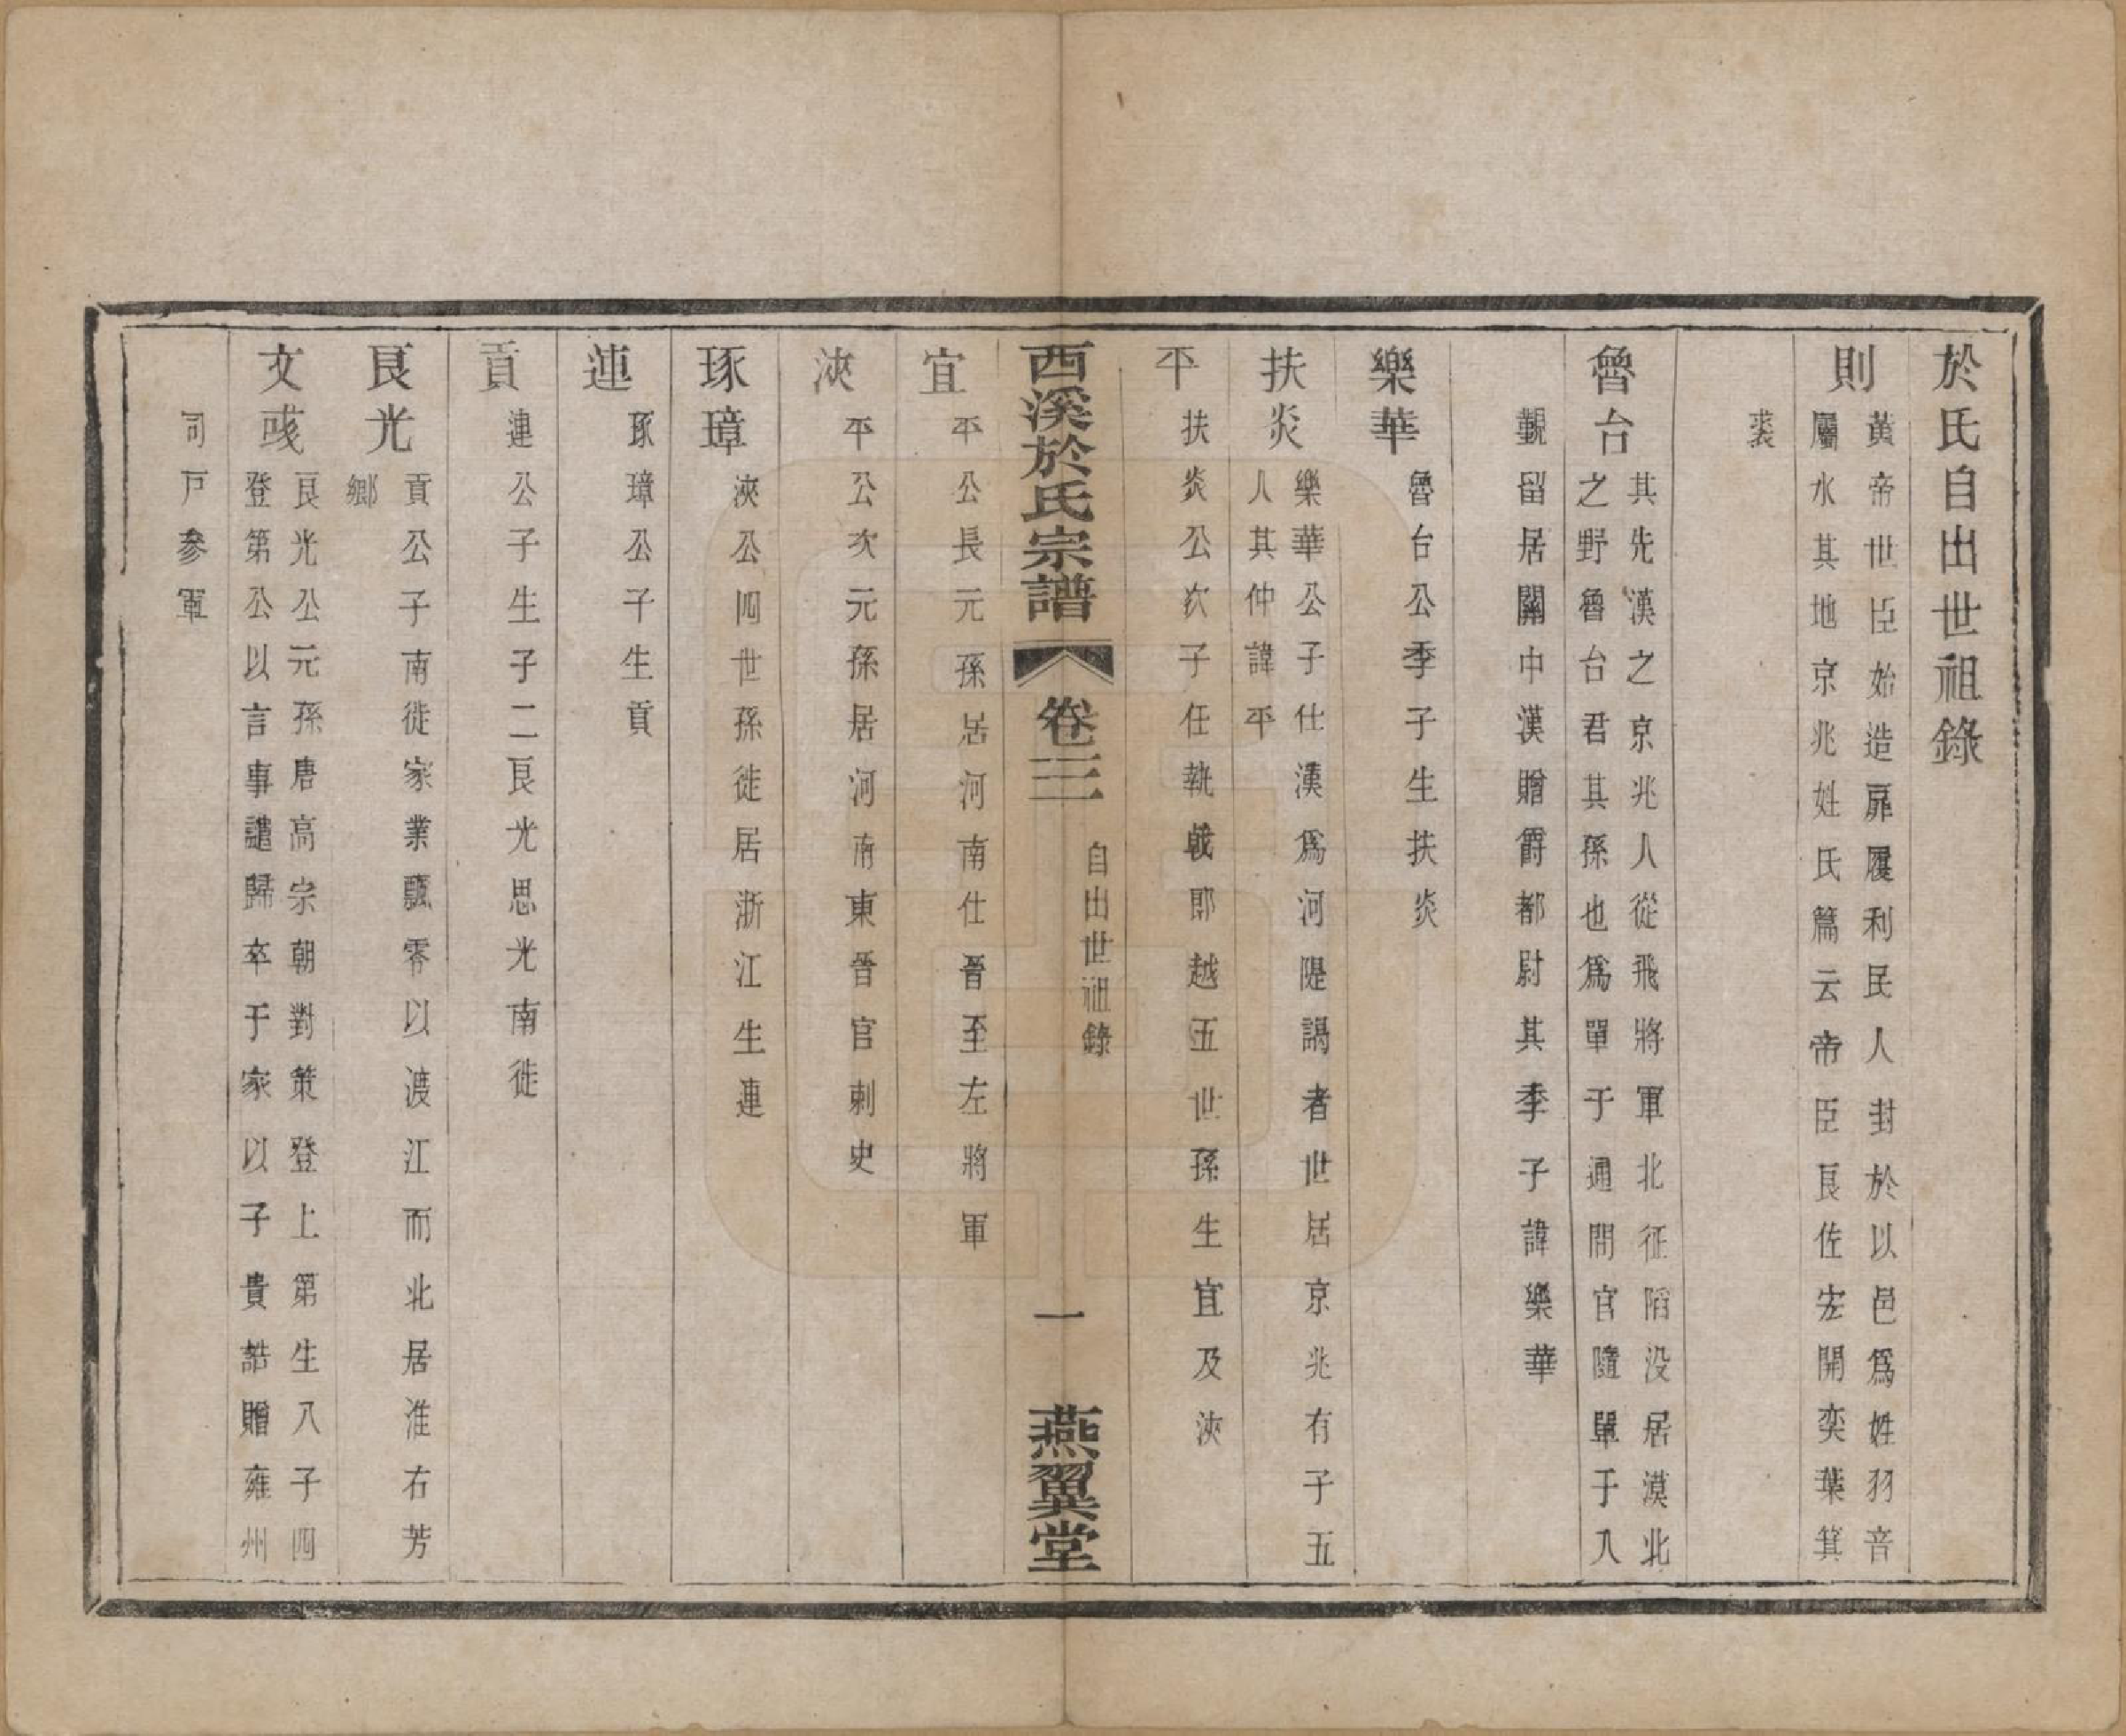 於氏自出世祖錄
則
黃帝世臣始造扉履利民人封於以邑爲姓羽音
屬水其地京兆姓氏篇云帝臣良佐宏開奕葉箕
裘
魯台
其先漢之京兆人從飛將軍北征陷没居漠北
之野魯台君其孫也爲單于通閒官隨單于入
覲留居關中漢贈爵都尉其季子諱樂華
樂華
魯台公季子生扶炎
扶炎
樂華公子仕漢爲河隄謁者世居京兆有子五
人其仲諱平
平
扶炎公次子任執戟郎越五世孫生宜及浹
西溪於氏宗譜
卷三
自出世祖錄
一
燕翼堂
宜
平公長元孫居河南仕晉至左將軍
浹
平公次元孫居河南東晉官刺史
琢璋
浹公四世孫徙居浙江生連
連
琢璋公子生貢
貢
連公子生子二良光思光南徙
良光
貢公子南徙家業飄零以渡江而北居淮右芳
鄉
文彧
良光公元孫唐高宗朝對策登上第生八子四
登第公以言事譴歸卒于家以子貴誥贈雍州
司戸參軍